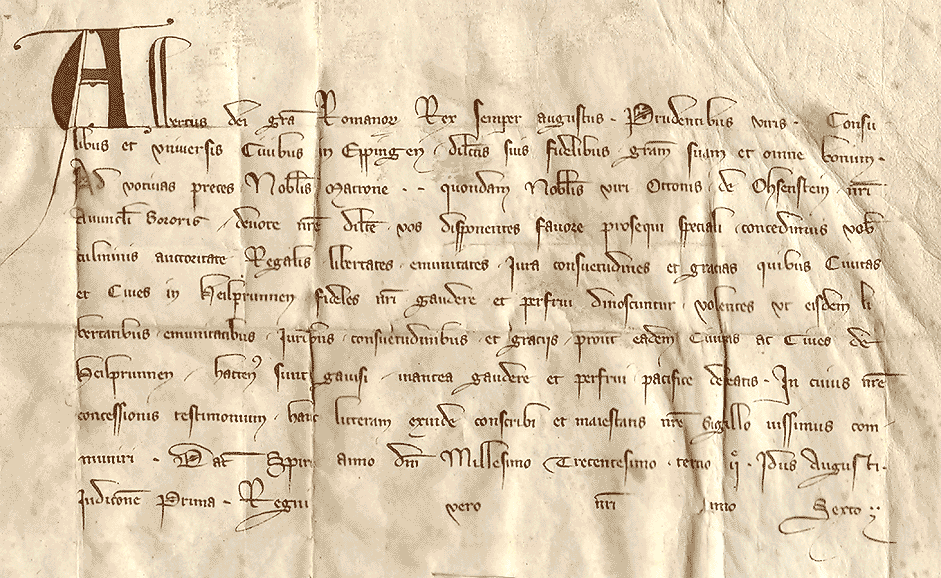 Albertus dei gra Romanor Rex semper augustus . Prudentibus viris . Consu
libus et vniuersis Ciuibus in Eppingen , dilcis suis fidelibus gram suam et omne bonum .
Ad votiuas preces Nobilis Matrone . . quondam Nobilis viri Ottonis de Ohsenstein nri
Auunculi Sororis , deuote nre dilce vos disponentes fauore prosequi speciali , concedimus vob
culminis auctoritate Regalis libertates , emunitates , Iura consuetudines et gracias quibus Ciuitas
et Ciues in Heilprunnen fideles nri gaudere et perfrui dinoscuntur , volentes vt eisdem li
bertatibus , emunitatibus , Iuribus , consuetudinibus , et gracijs , prout eadem Ciuitas ac Ciues de
Heilprunnen , hacten sunt gauisi , inantea gaudere et perfrui pacifice debeatis . In cuius nre
concessionis testimonium , hanc litteram exinde conscribi et maiestatis nre Sigillo iussimus com
muniri . Dat Spir anno dni Millesimo Trecentesimo , tercio ij . Idus Augusti .
Indicone Prima . Regni vero nri Anno Sexto